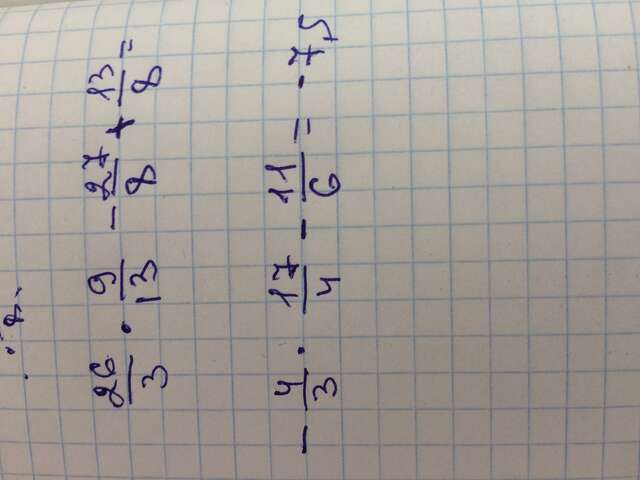 26/3 · 9/13 - 27/8 + 13/8 =
- 4/3 · 17/4 - 11/6 = -7,5